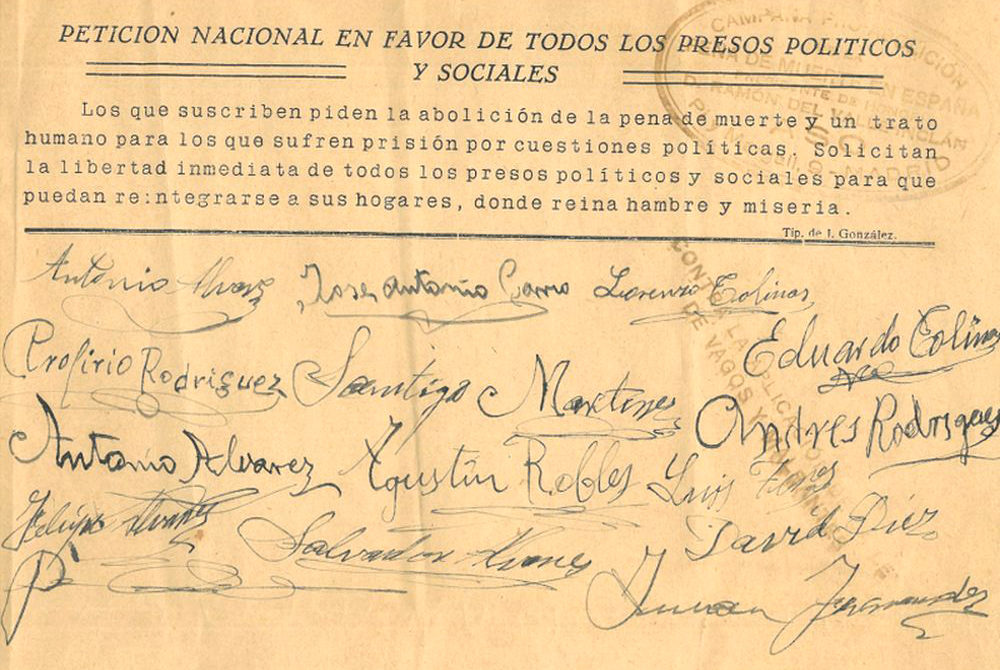 PETICION NACIONAL EN FAVOR DE TODOS LOS PRESOS POLITICOS
Y SOCIALES
Los que suscriben piden la abolición de la pena de muerte y un trato
humano para los que sufren prisión por cuestiones políticas. Solicitan
la libertad inmediata de todos los presos políticos y sociales para que
puedan re:ntegrarse a sus hogares, donde reina hambre y miseria.
Tip. de J. González.
CAMPAÑA
PENA DE MUERTE EN ESPAÑA
D. RAMÓN DEL VALLE INCLÁN
MADRID
CONTRA LA
DE VAGOS Y
Antonio Jose Antonio Carro Lorenzo Colinas
Eduardo Colinas
Profirio Rodriguez Santigo Martinez
Andres Rodrigues
Antonio Alvarez Agustín Robles Luis
Felipe
Salvador David Diez
Juan Fernandez